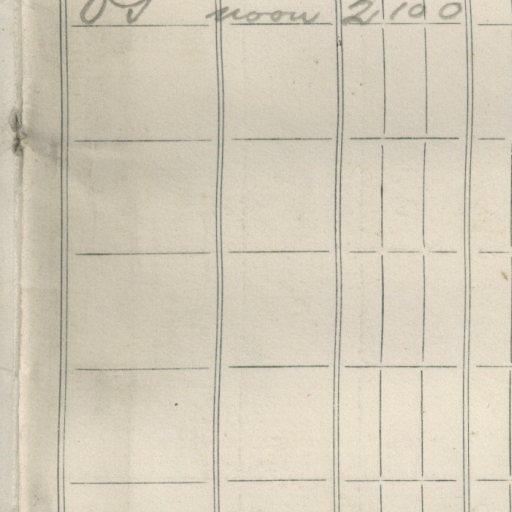 noon 2 10 0